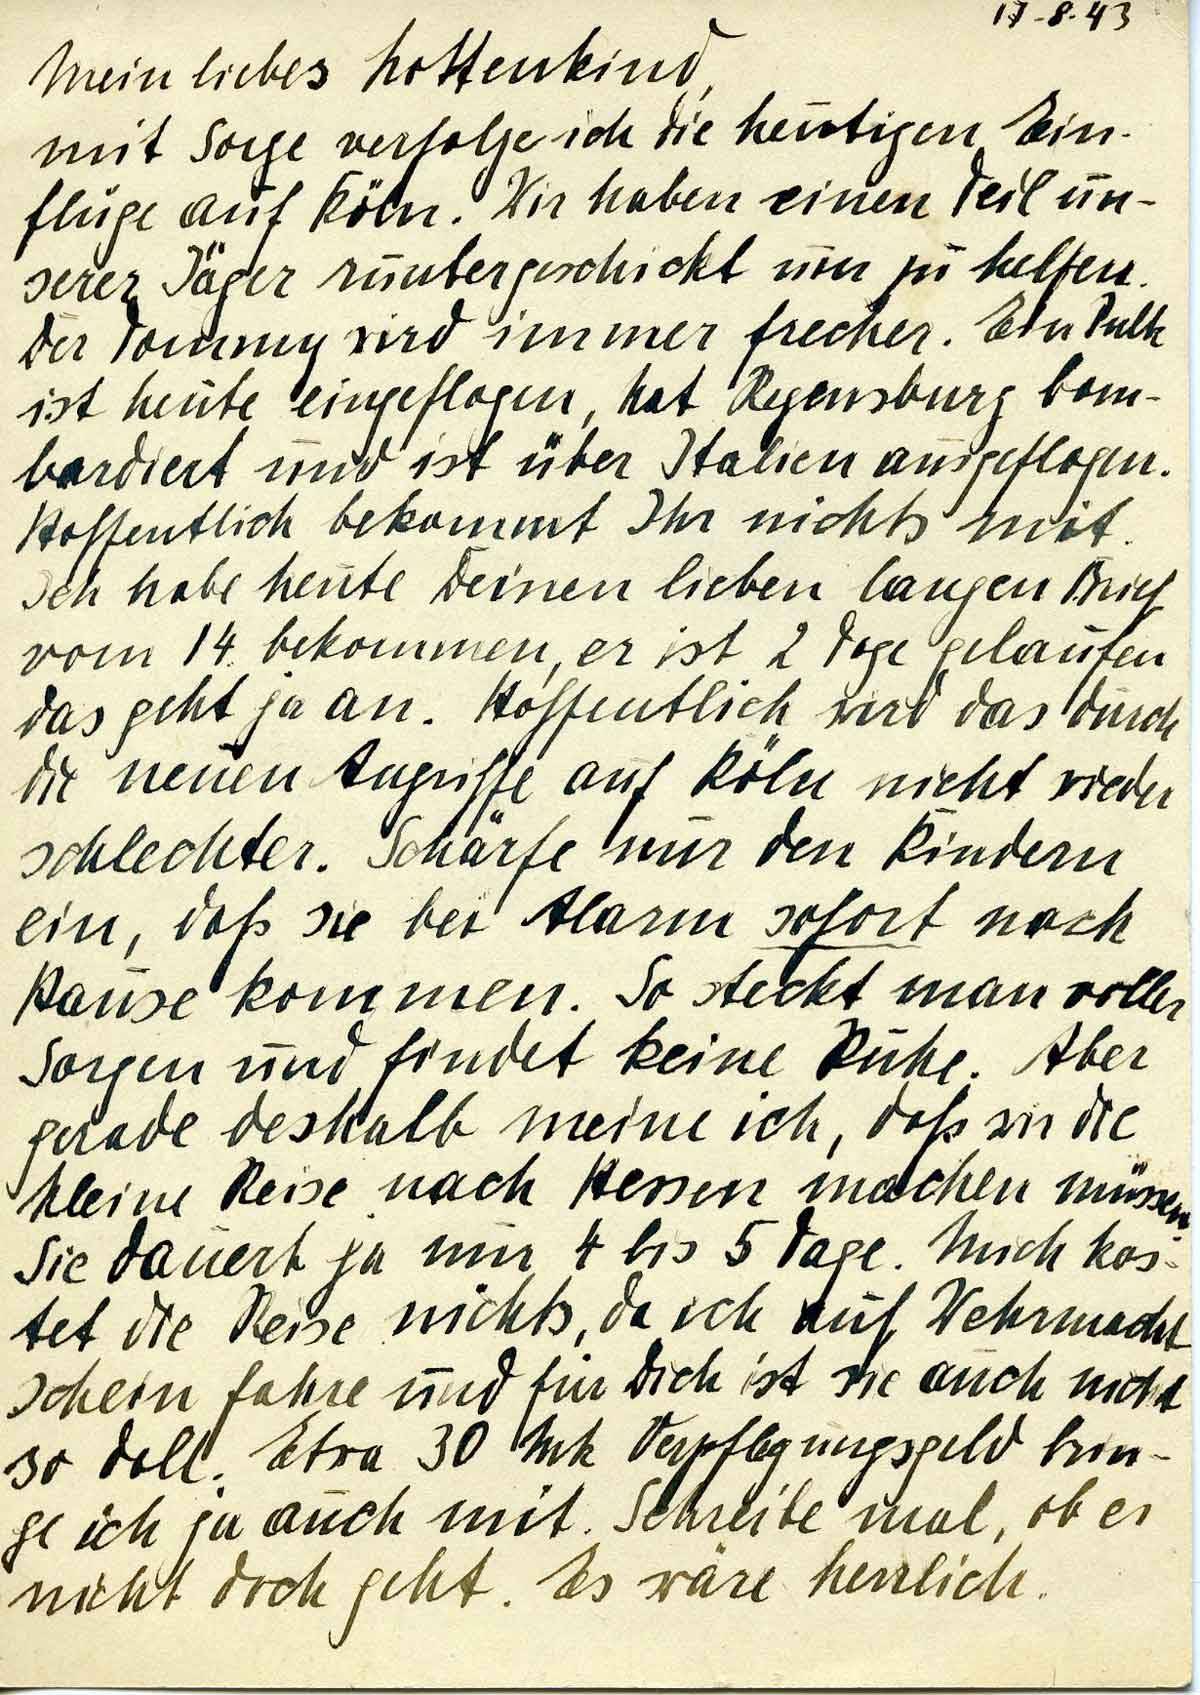 17-8-43
Mein liebes Hottenkind,
mit Sorge verfolge ich die heutigen Ein-
flüge auf Köln. Wir haben einen Teil un-
serer Jäger runtergeschickt um zu helfen.
Der Tommy wird immer frecher. Ein Pulk
ist heute eingeflogen, hat Regensburg bom-
bardiert und ist über Italien ausgeflogen.
Hoffentlich bekommt Ihr nichts mit.
Ich habe heute Deinen lieben langen Brief
vom 14. bekommen, er ist 2 Tage gelaufen
das geht ja an. Hoffentlich wird das durch
die neuen Angriffe auf Köln nicht wieder
schlechter. Schärfe nur den Kindern
ein, daß sie bei Alarm sofort nach
Hause kommen. So steckt man voller
Sorgen und findet keine Ruhe. Aber
gerade deshalb meine ich, daß wir die
kleine Reise nach Hessen machen müssen.
Sie dauert ja nur 4 bis 5 Tage. Mich kos-
tet die Reise nichts, da ich auf Wehrmacht
schein fahre und für Dich ist sie auch nicht
so doll. Etwa 30 Mk Verpflegungsgeld brin-
ge ich ja auch mit. Schreibe mal, ob es
nicht doch geht. Es wäre herrlich.